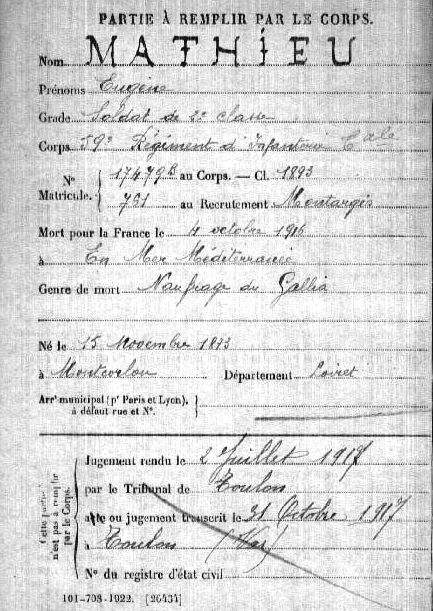 PARTIE À REMPLIR PAR LE CORPS.
Nom MATHIEU
Prénoms Eugène
Grade Soldat de 2e classe
Corps 59e Régiment d'Infanterie Cale
No Matricule. 17479B au Corps. — Cl. 1893
781 au Recrutement Montargis
Mort pour la France le 4 octobre 1916
à En Mer Méditerranée
Genre de mort Naufrage du Gallia
Né le 15 Novembre 1873
à Département Loiret
Arrt municipal (pr Paris et Lyon), à défaut rue et No.
Cette partie n'est pas à remplir par le Corps.
Jugement rendu le 2 Juillet 1917
par le Tribunal de Toulon
acte ou jugement transcrit le 31 Octobre 1917
à Toulon (Var)
No du registre d'état civil
101-708-1922. [26434]